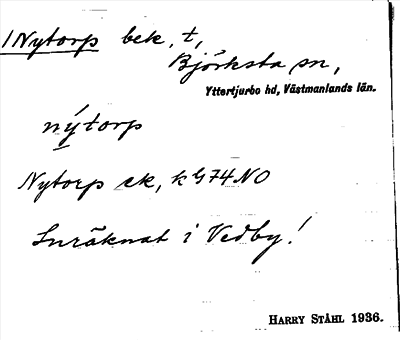 1Nytorp bek. t,
Björksta sn,
Yttertjurbo hd, Västmanlands län.
nýtorp
Nytorp ek, k G74NO
Inräknat i Vedby!
HARRY STÅHL 1936.